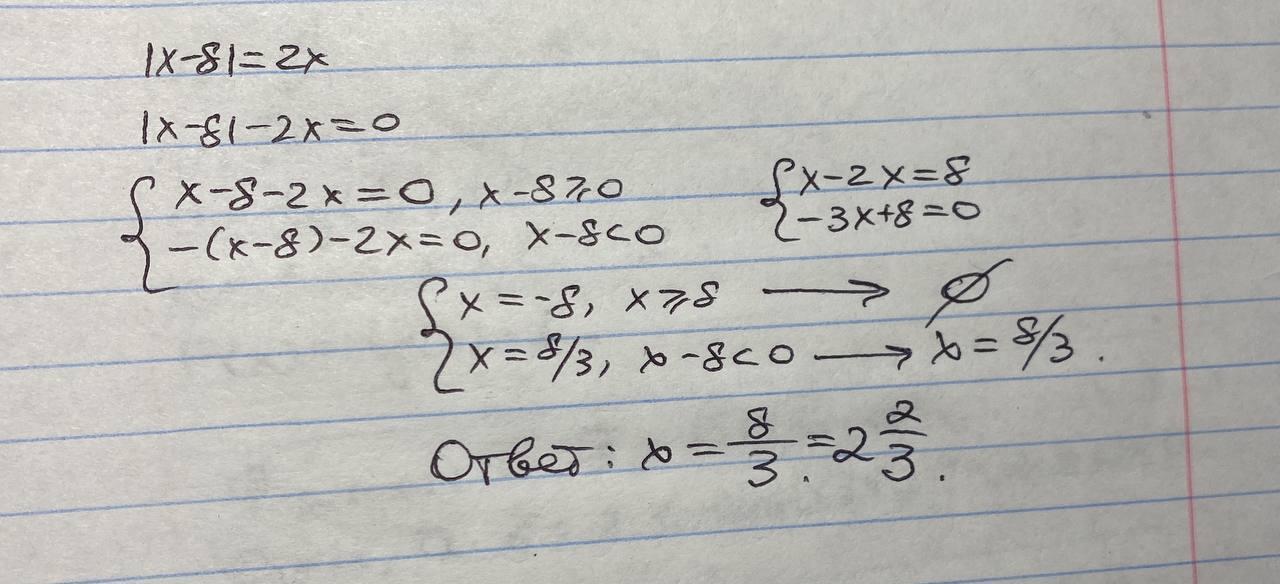 |x-8|=2x
|x-8|-2x=0
{ x-8-2x=0, x-8⩾0
-(x-8)-2x=0, x-8<0
{ x-2x=8
-3x+8=0
{ x=-8, x⩾8 ⟶ ∅
x=8/3, x-8<0 ⟶ x=8/3.
Ответ: x = 8/3. = 2 2/3.